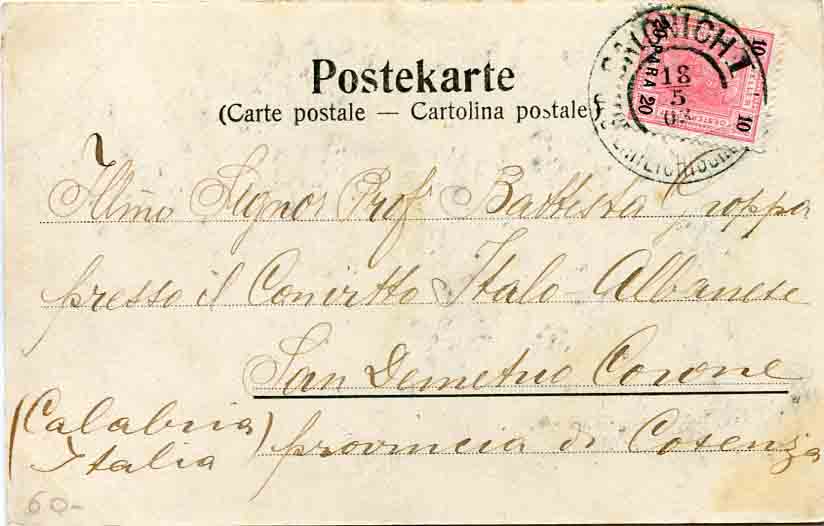 Postekarte
(Carte postale — Cartolina postale)
SALONICH 1
18
5
10
10
20 PARA 20
Illmo Signor Prof Battista Groppa
presso il Convitto Italo-Albanese
San Demetrio Corone
(Calabria
Italia)
provincia di Cosenza
60-